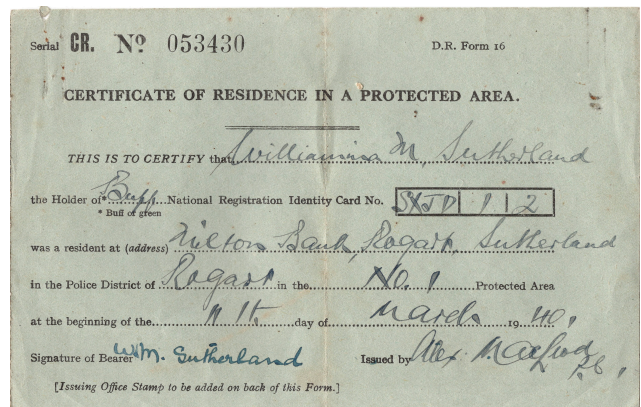 Serial CR. No 053430 D.R. Form 16
CERTIFICATE OF RESIDENCE IN A PROTECTED AREA.
THIS IS TO CERTIFY that Williamina M. Sutherland
the Holder of *Buff National Registration Identity Card No. SXJD 1 2
* Buff of green
was a resident at (address) Milton Bank, Rogart, Sutherland
in the Police District of Rogart in the No. 1 Protected Area
at the beginning of the 11th day of March 1940.
Signature of Bearer W.M. Sutherland Issued by Alex. P.C.
[Issuing Office Stamp to be added on back of this Form.]